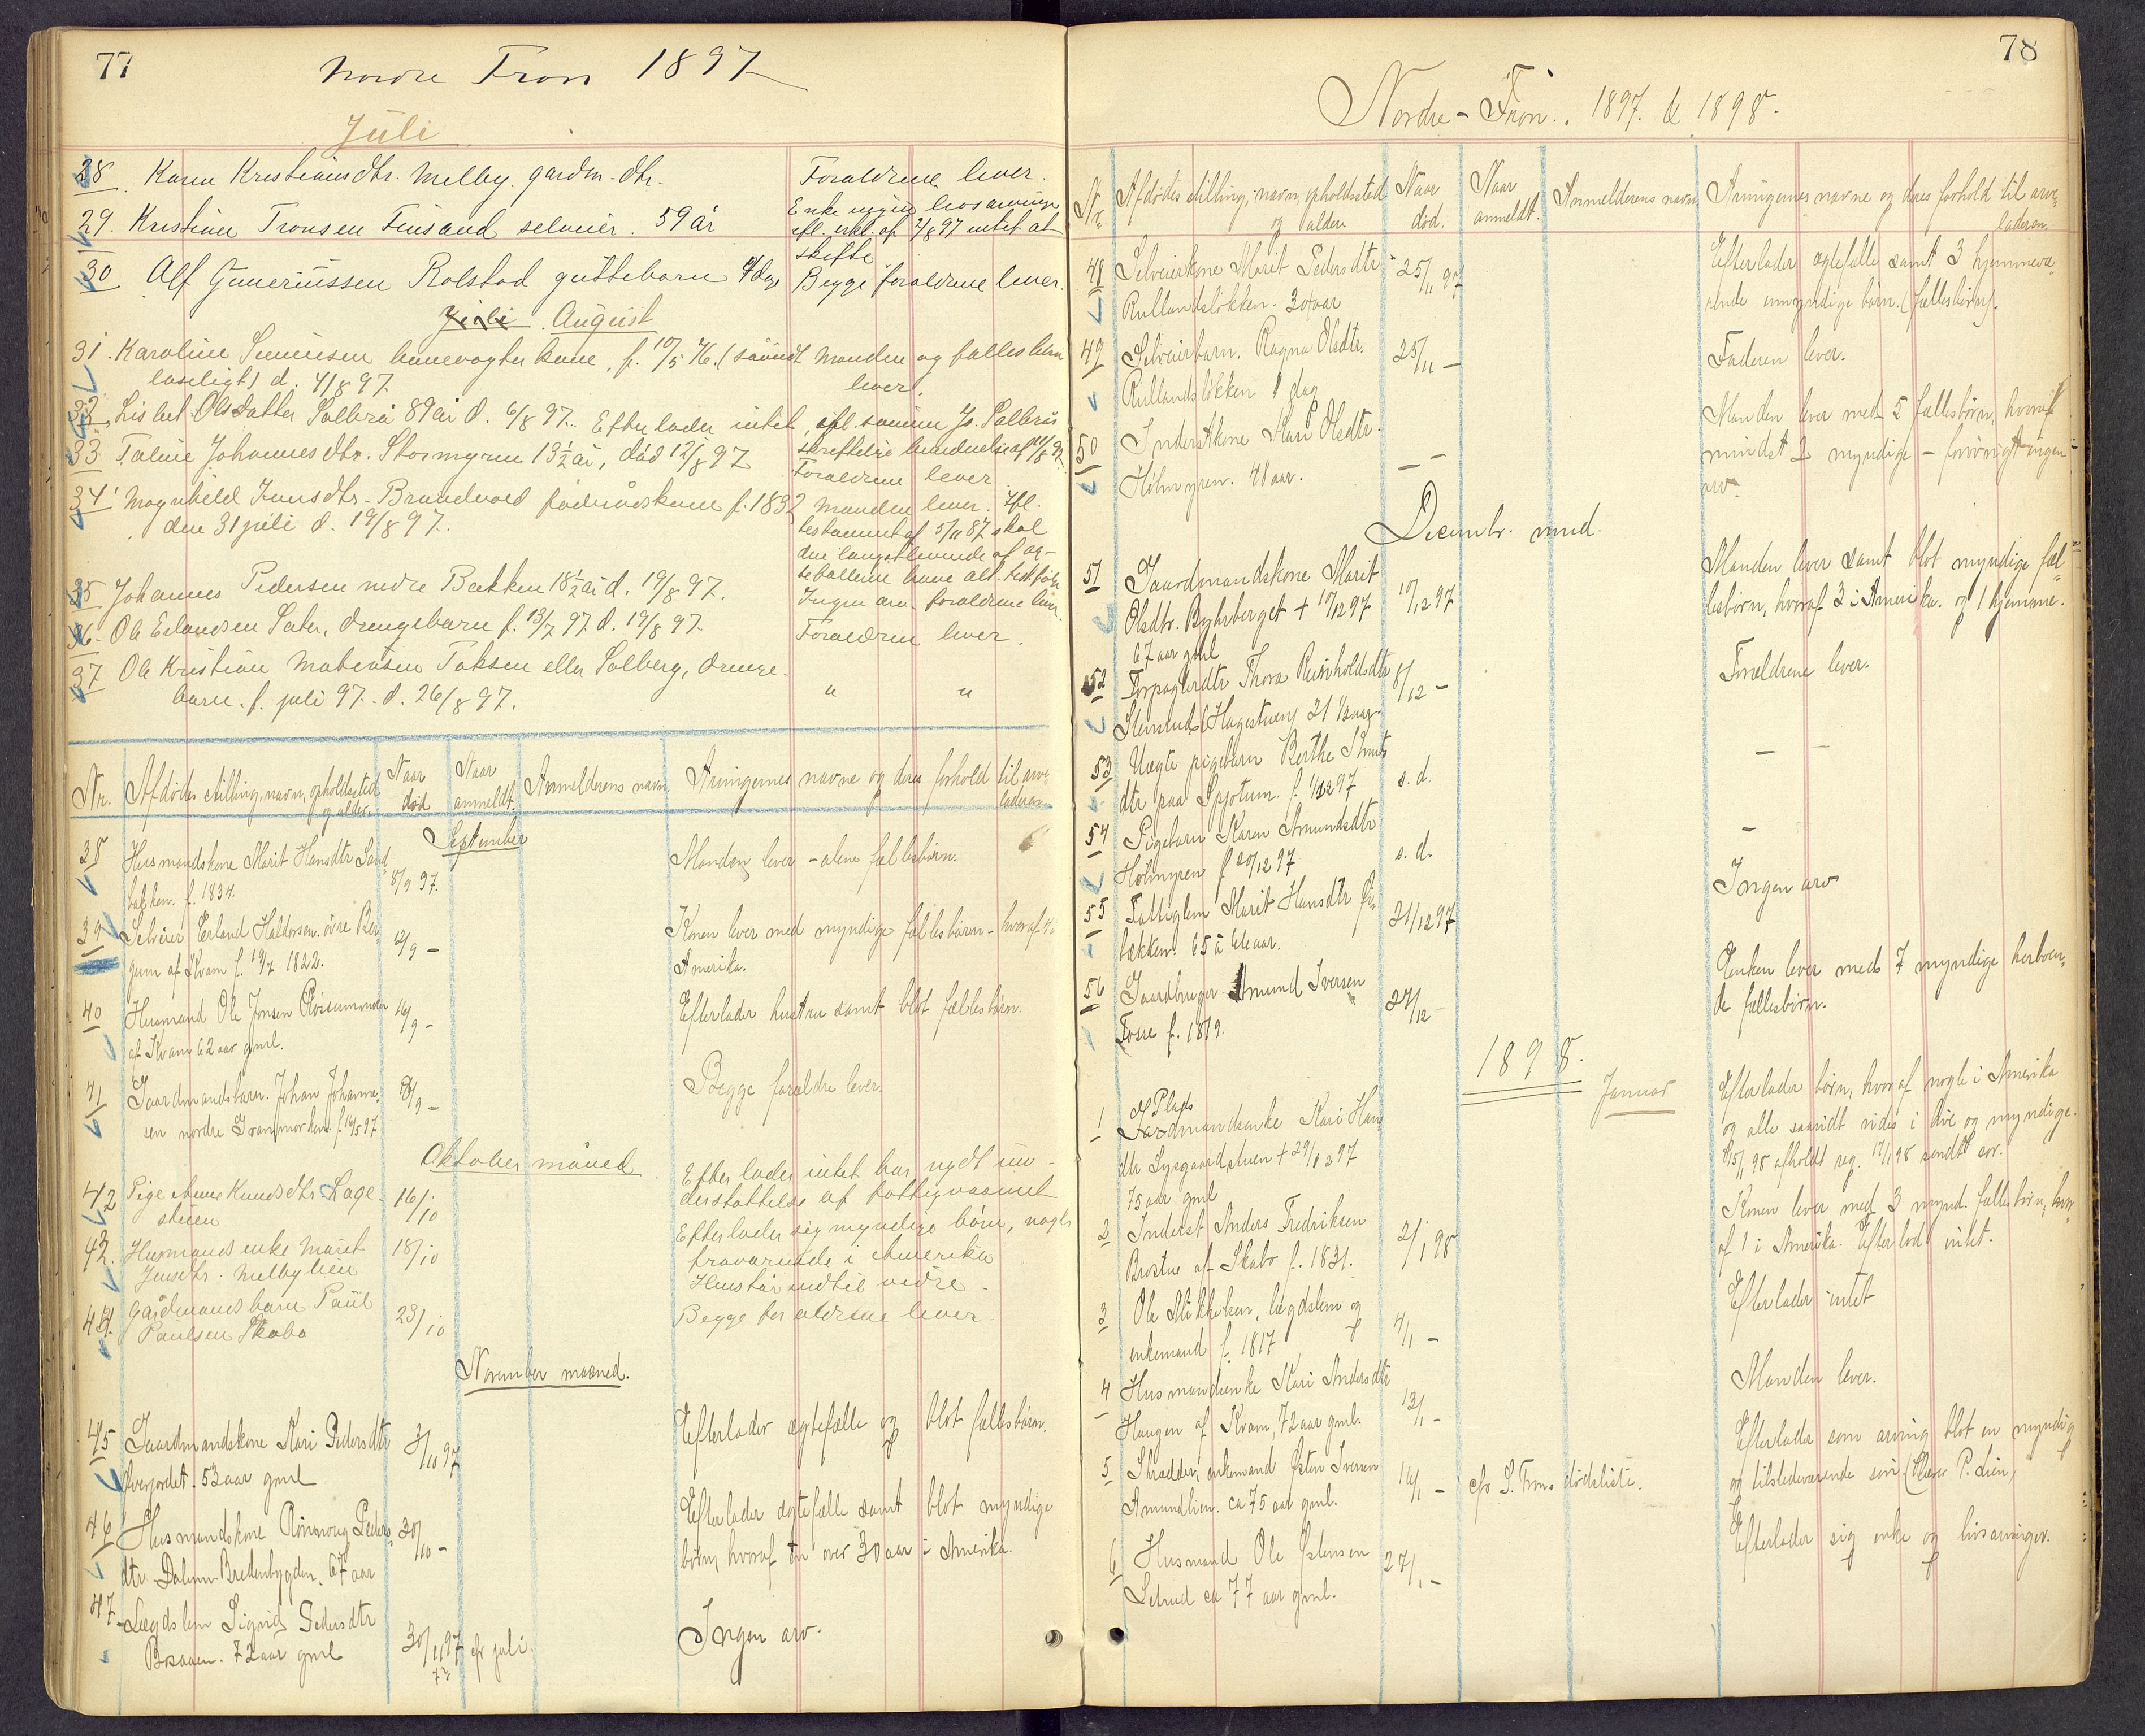 77
Nordre Fron 1897
Juli
28. Karen Kristiansdtr. Melby. gårdm. dtr. Forældrene lever.
29. Kristian Tronsen Finsand selveier. 59 år Enke ingen livsarvinge
efl. erkl. af 2/8 97 intet at
skifte
30 Alf Gunerüssen Rolstad guttebarn 4 dage Begge forældrene lever.
Juli August
31. Karoline Simensen banevogter kone, f. 10/5 76. (såvidt Manden og fælles barn
læseligt) d. 4/8 97. lever.
32. Lisbet Olsdatter Solbrå 89 år d. 6/8 97. Efterlader intet, efl. sønnen Jo. Solbrås
skriftlige meddelelse af 11/8 97
33 Taline Johannesdtr. Stormyren 13 1/2 år, død 12/8 97 Forældrene lever
34 Magnhild Iversdtr. Brandvold føderådskone f. 1832 Manden lever. Ifl.
den 31 juli d. 19/8 97. testament af 5/11 87 skal
den længstlevende af æg-
tefællerne have alt.
35 Johannes Pedersen nedre Bækken 18 1/2 år d. 19/8 97. Ingen arv. forældrene lever.
36. Ole Erlandsen Sæter, drengebarn f. 13/7 97. d. 19/8 97. Forældrene lever.
37 Ole Kristian Mathiasen Toksen eller Solberg, drenge-
barn. f. juli 97. d. 26/8 97. " "
Nr. Afdødes stilling, navn, opholdssted og alder. Naar død Naar anmeldt. Anmelderens navn. Arvingernes navne og deres forhold til arve-
laderen
September
38 Husmandskone Marit Hansdtr Sand- 8/9 97. Manden lever – alene fællesbørn.
bakken. f. 1834.
39 Selveier Erland Haldorsen øvre Ber- 12/9 – Konen lever med myndige fællesbørn – hvoraf 4 i
gum af Kvam f. 19/7 1822. Amerika.
40 Husmand Ole Jonsen 16/9 – Efterlader hustru samt blot fællesbørn.
af Kvam 62 aar gml.
41 Gaardmandsbarn. Johan Johanne- /9 – Begge forældre lever.
sen nordre f. 14/5 97
Oktober måned
42 Pige Anne Knudsdtr Hage- 16/10 Efterlader intet har nydt un-
stuen derstøttelse af fattigvæsenet
43. Husmands enke Marit 18/10 Efterlader sig myndige børn, nogle
Jensdtr. Melbylien fraværende i Amerika
Henstår indtil videre.
44. Gårdmandsbarn Paul 23/10 Begge forældrene lever.
Paulsen Skabo
November maaned.
45 Gaardmandskone Kari Pedersdtr 3/10 97 Efterlader ægtefælle og blot fællesbørn.
Øverjordet. 53 aar gml
46 Husmandskone Rønnoug Peders- 30/10 – Efterlader ægtefælle samt blot myndige
dtr Dalum Bredenbygden. 67 aar børn, hvoraf én over 30 aar i Amerika.
47 Lægdslem Sigrid Pedersdtr 30/11 97 cfr juli. Ingen arv.
72 aar gml
78
Nordre-Fron. 1897. & 1898.
Nr. Afdødes stilling, navn, opholdssted og alder. Naar død. Naar anmeldt. Anmelderens navn Arvingernes navne og deres forhold til arve-
laderen
48 Selveierkone Marit Pedersdtr 25/11 97 Efterlader ægtefælle samt 3 hjemmevæ-
Rullandsløkken. 30 aar rende umyndige børn. (fællesbørn).
49 Selveierbarn. Ragna Olsdtr. 25/11 – Faderen lever.
Rullandsløkken 1 dag
50 Inderstkone Kari Olsdtr. – – Manden lever med 5 fællesbørn, hvoraf
Holmyren. 48 aar. mindst 2 myndige – forøvrigt ingen
arv.
Decembr. mnd.
51 Gaardmandskone Marit 10/12 97 Manden lever samt blot myndige fæl-
Olsdtr. + 10/12 97 lesbørn, hvoraf 3 i Amerika. og 1 hjemme.
67 aar gml
52 Forpagterdtr Thora Reinholdsdtr 8/12 – Forældrene lever.
(Hagestuen) 21 1/2 aar
53 Uægte pigebarn Berthe Knuts- s. d. – –
dtr paa Spjotum. f. 1/12 97
54 Pigebarn Karen Amundsdtr s. d. –
Holmyren f 20/12 97
55 Fattiglem Marit Hansdtr 21/12 97 Ingen arv
bækken. 65 à 66 aar.
56 Gaardbruger Amund Iversen 27/12 – Enken lever med 7 myndige herboen-
Fosse f. 1819. de fællesbørn.
1898.
Januar
1 Plads
Gaardmandsenke Kari Han- Efterlader børn, hvoraf nogle i Amerika
dtr Lysgaardstuen + 29/12 97 og alle saavidt vides i live og myndige.
75 aar gml 15/1 98 afholdt reg. 17/1 98 sendt sor.
2 Inderst Anders Fredriksen 2/1 98 Konen lever med 3 mynd. fællesbørn, hvor-
Brostue af Skabo f. 1831. af 1 i Amerika. Efterlod intet.
3 Ole Mikkelsen, lægdslem og 4/1 – Efterlader intet
enkemand f. 1817
4 Husmandsenke Kari Andersdtr 13/1 – Manden lever.
Haugen af Kvam, 72 aar gml.
5 Skrædder, enkemand Østen Iversen 16/1 – cfr S. Frons dødsliste. Efterlader som arving blot en myndig
Amundlien. ca 75 aar gml. og tilstedeværende søn. (Elever P. Lien)
6 Husmand Ole Østensen 27/1 – Efterlader sig enke og livsarvinger.
Selrud ca 77 aar gml.